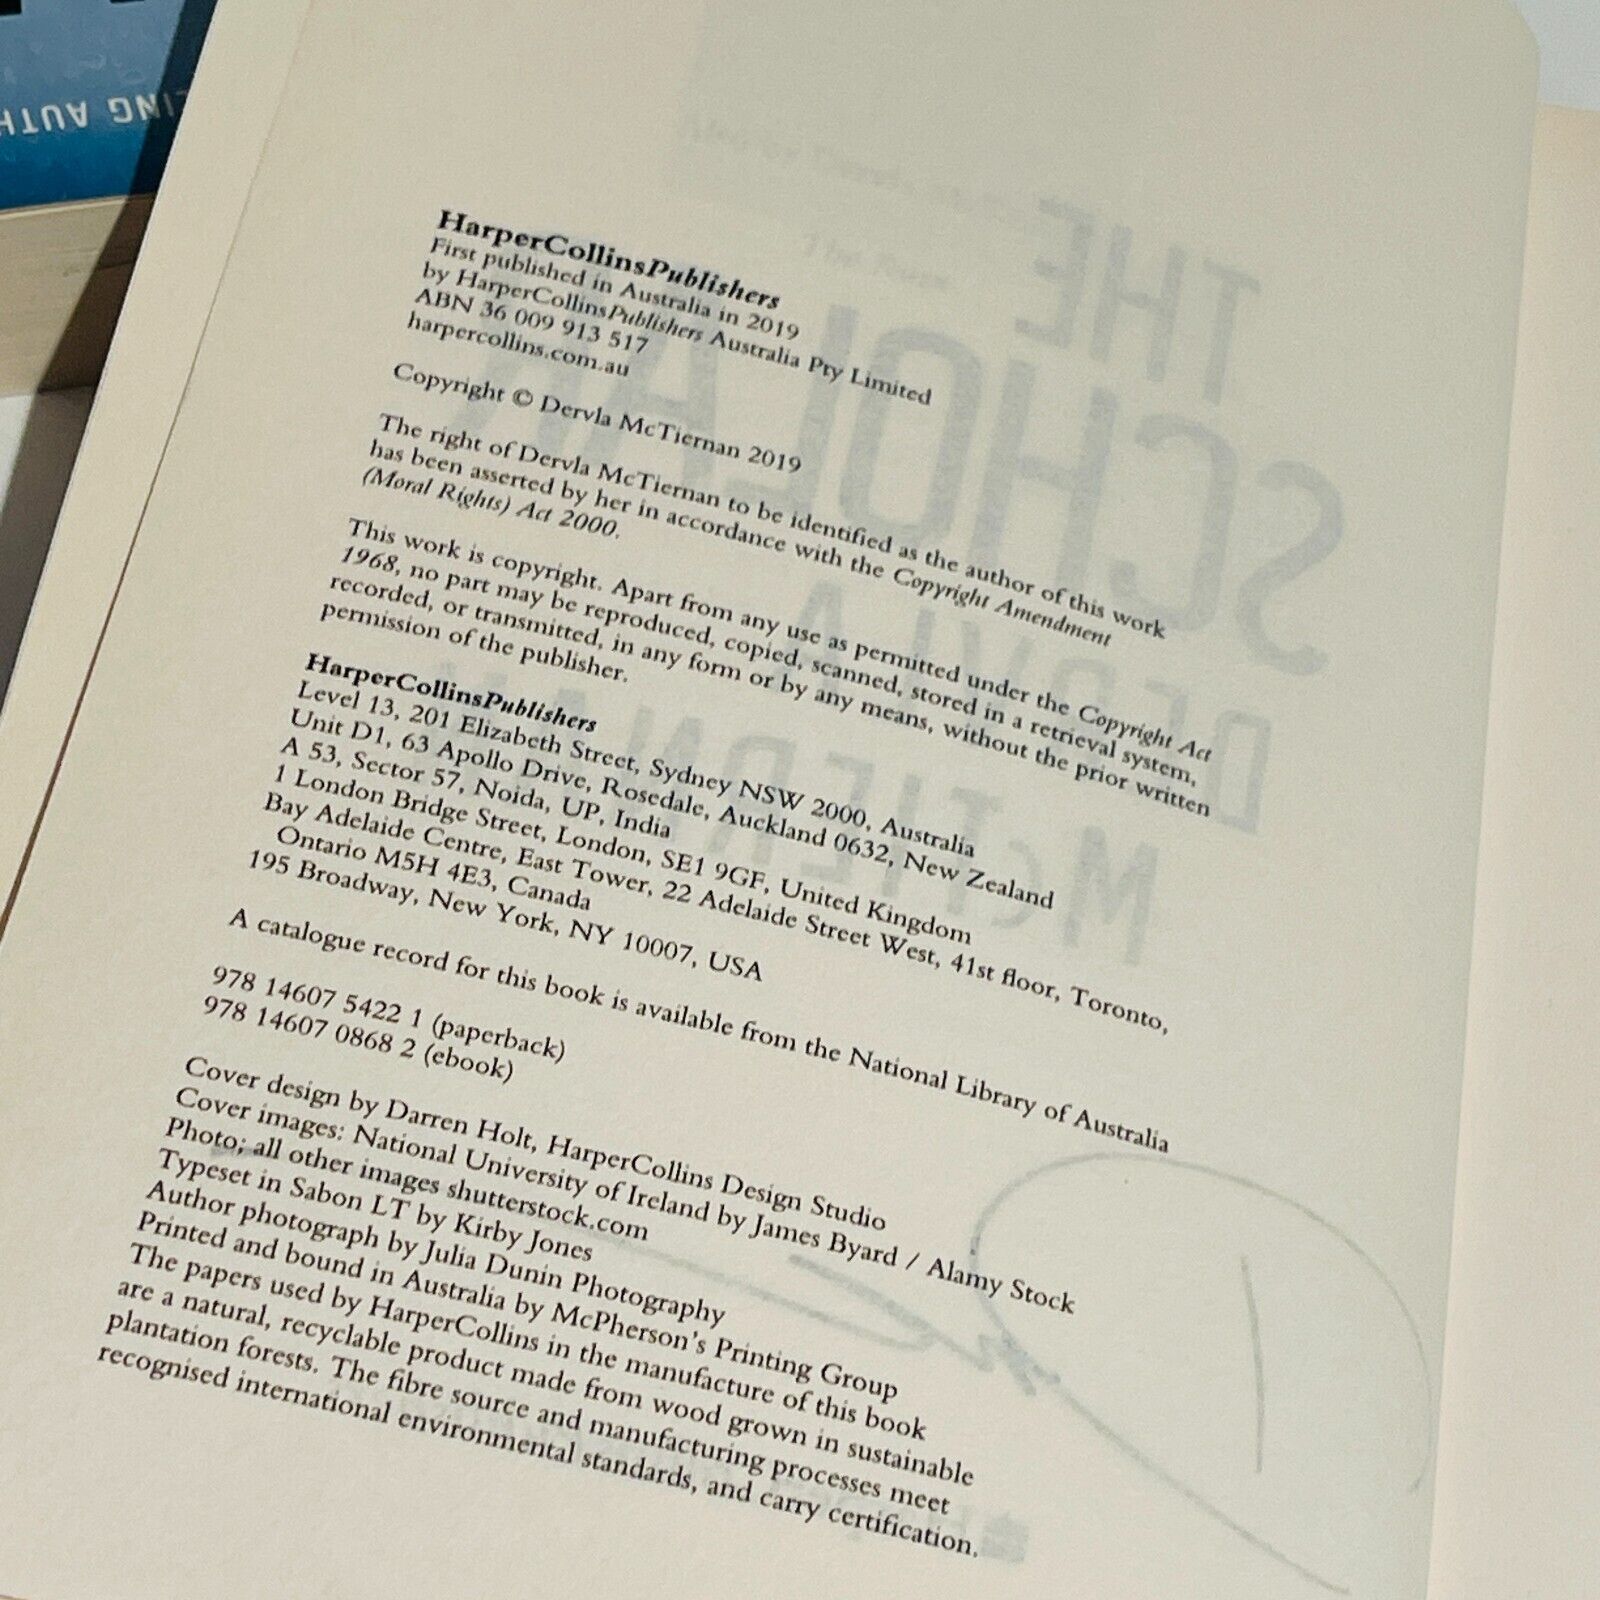 LING AUTH
HarperCollinsPublishers
First published in Australia in 2019
by HarperCollinsPublishers Australia Pty Limited
ABN 36 009 913 517
harpercollins.com.au
Copyright © Dervla McTiernan 2019
The right of Dervla McTiernan to be identified as the author of this work
has been asserted by her in accordance with the Copyright Amendment
(Moral Rights) Act 2000.
This work is copyright. Apart from any use as permitted under the Copyright Act
1968, no part may be reproduced, copied, scanned, stored in a retrieval system,
recorded, or transmitted, in any form or by any means, without the prior written
permission of the publisher.
HarperCollinsPublishers
Level 13, 201 Elizabeth Street, Sydney NSW 2000, Australia
Unit D1, 63 Apollo Drive, Rosedale, Auckland 0632, New Zealand
A 53, Sector 57, Noida, UP, India
1 London Bridge Street, London, SE1 9GF, United Kingdom
Bay Adelaide Centre, East Tower, 22 Adelaide Street West, 41st floor, Toronto,
Ontario M5H 4E3, Canada
195 Broadway, New York, NY 10007, USA
A catalogue record for this book is available from the National Library of Australia
978 14607 5422 1 (paperback)
978 14607 0868 2 (ebook)
Cover design by Darren Holt, HarperCollins Design Studio
Cover images: National University of Ireland by James Byard / Alamy Stock
Photo; all other images shutterstock.com
Typeset in Sabon LT by Kirby Jones
Author photograph by Julia Dunin Photography
Printed and bound in Australia by McPherson's Printing Group
The papers used by HarperCollins in the manufacture of this book
are a natural, recyclable product made from wood grown in sustainable
plantation forests. The fibre source and manufacturing processes meet
recognised international environmental standards, and carry certification.
THE
SCHOLAR
DERVLA
McTIERNAN